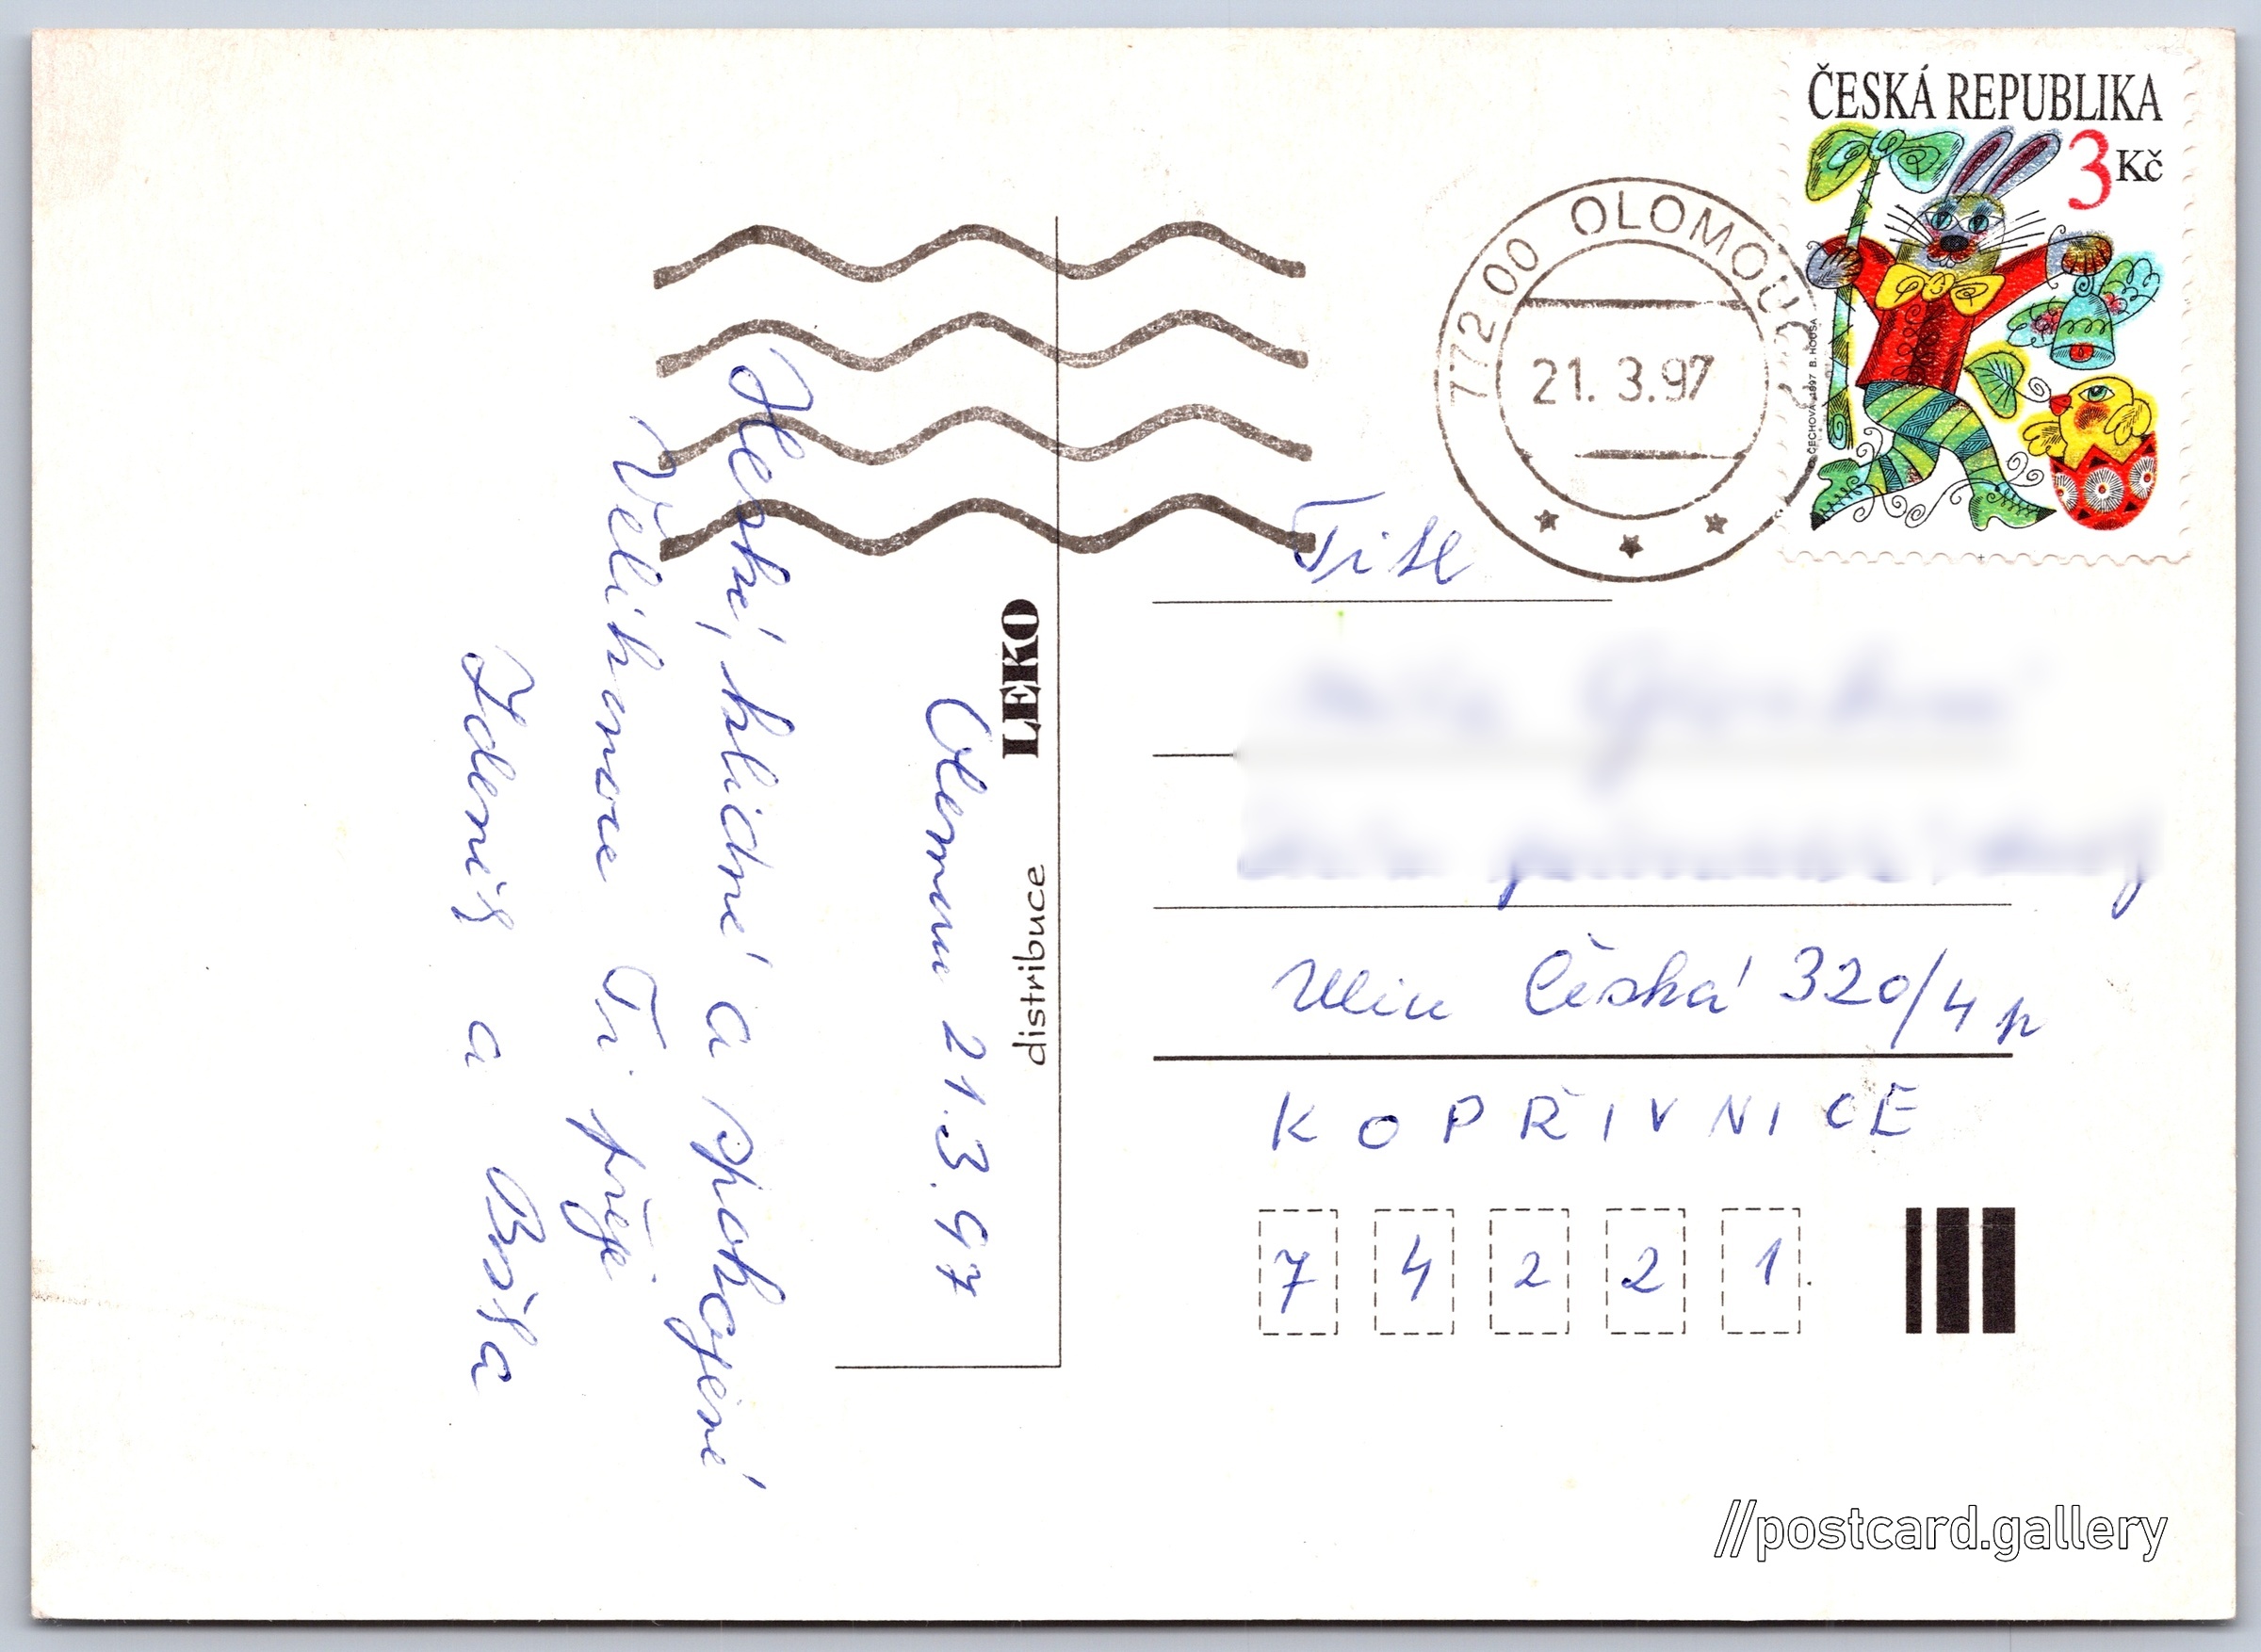 Olomouc 21.3.97
Hezké, klidné a spokojené
Velikonoce Ti přeje
Zdeněk a Boža
LEKO
distribuce
772 00 OLOMOUC
21. 3.97
ČESKÁ REPUBLIKA
3 Kč
ČECHOVÁ 1997 B. HOUSA
Ulice Česká 320/4 p
KOPŘIVNICE
7 4 2 2 1
//postcard.gallery